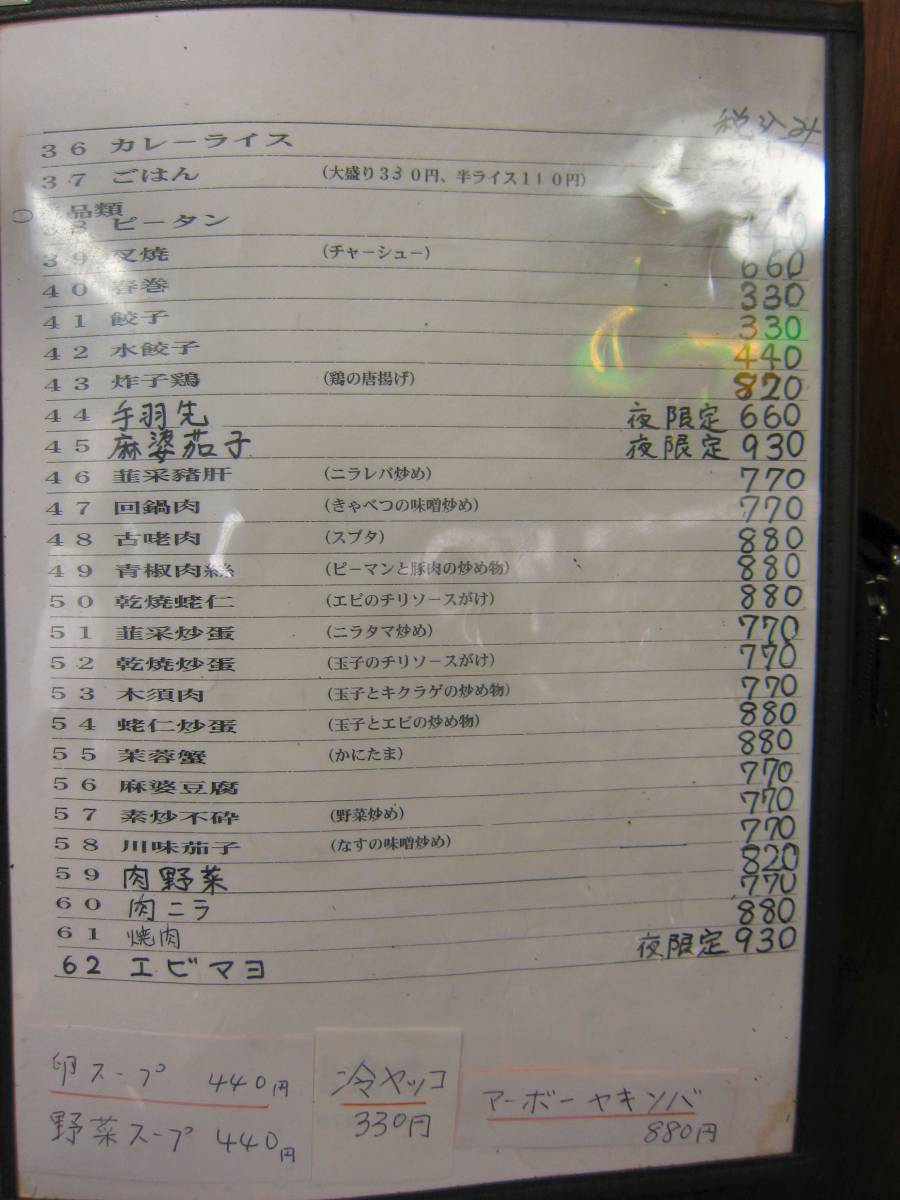 税込み
36 カレーライス
37 ごはん (大盛り330円、半ライス110円)
品類
38 ピータン
39 叉焼 (チャーシュー) 660
40 春巻 330
41 餃子 330
42 水餃子 440
43 炸子鶏 (鶏の唐揚げ) 820
44 手羽先 夜限定 660
45 麻婆茄子 夜限定 930
46 韮采豬肝 (ニラレバ炒め) 770
47 回鍋肉 (きゃべつの味噌炒め) 770
48 古咾肉 (スブタ) 880
49 青椒肉絲 (ピーマンと豚肉の炒め物) 880
50 乾焼蛯仁 (エビのチリソースがけ) 880
51 韮采炒蛋 (ニラタマ炒め) 770
52 乾焼炒蛋 (玉子のチリソースがけ) 770
53 木須肉 (玉子とキクラゲの炒め物) 770
54 蛯仁炒蛋 (玉子とエビの炒め物) 880
55 茉蓉蟹 (かにたま) 880
56 麻婆豆腐 770
57 素炒不砕 (野菜炒め) 770
58 川味茄子 (なすの味噌炒め) 770
59 肉野菜 820
60 肉ニラ 770
61 焼肉 880
62 エビマヨ 夜限定 930
卵スープ 440円
野菜スープ 440円
冷ヤッコ
330円
アーボーヤキソバ
880円